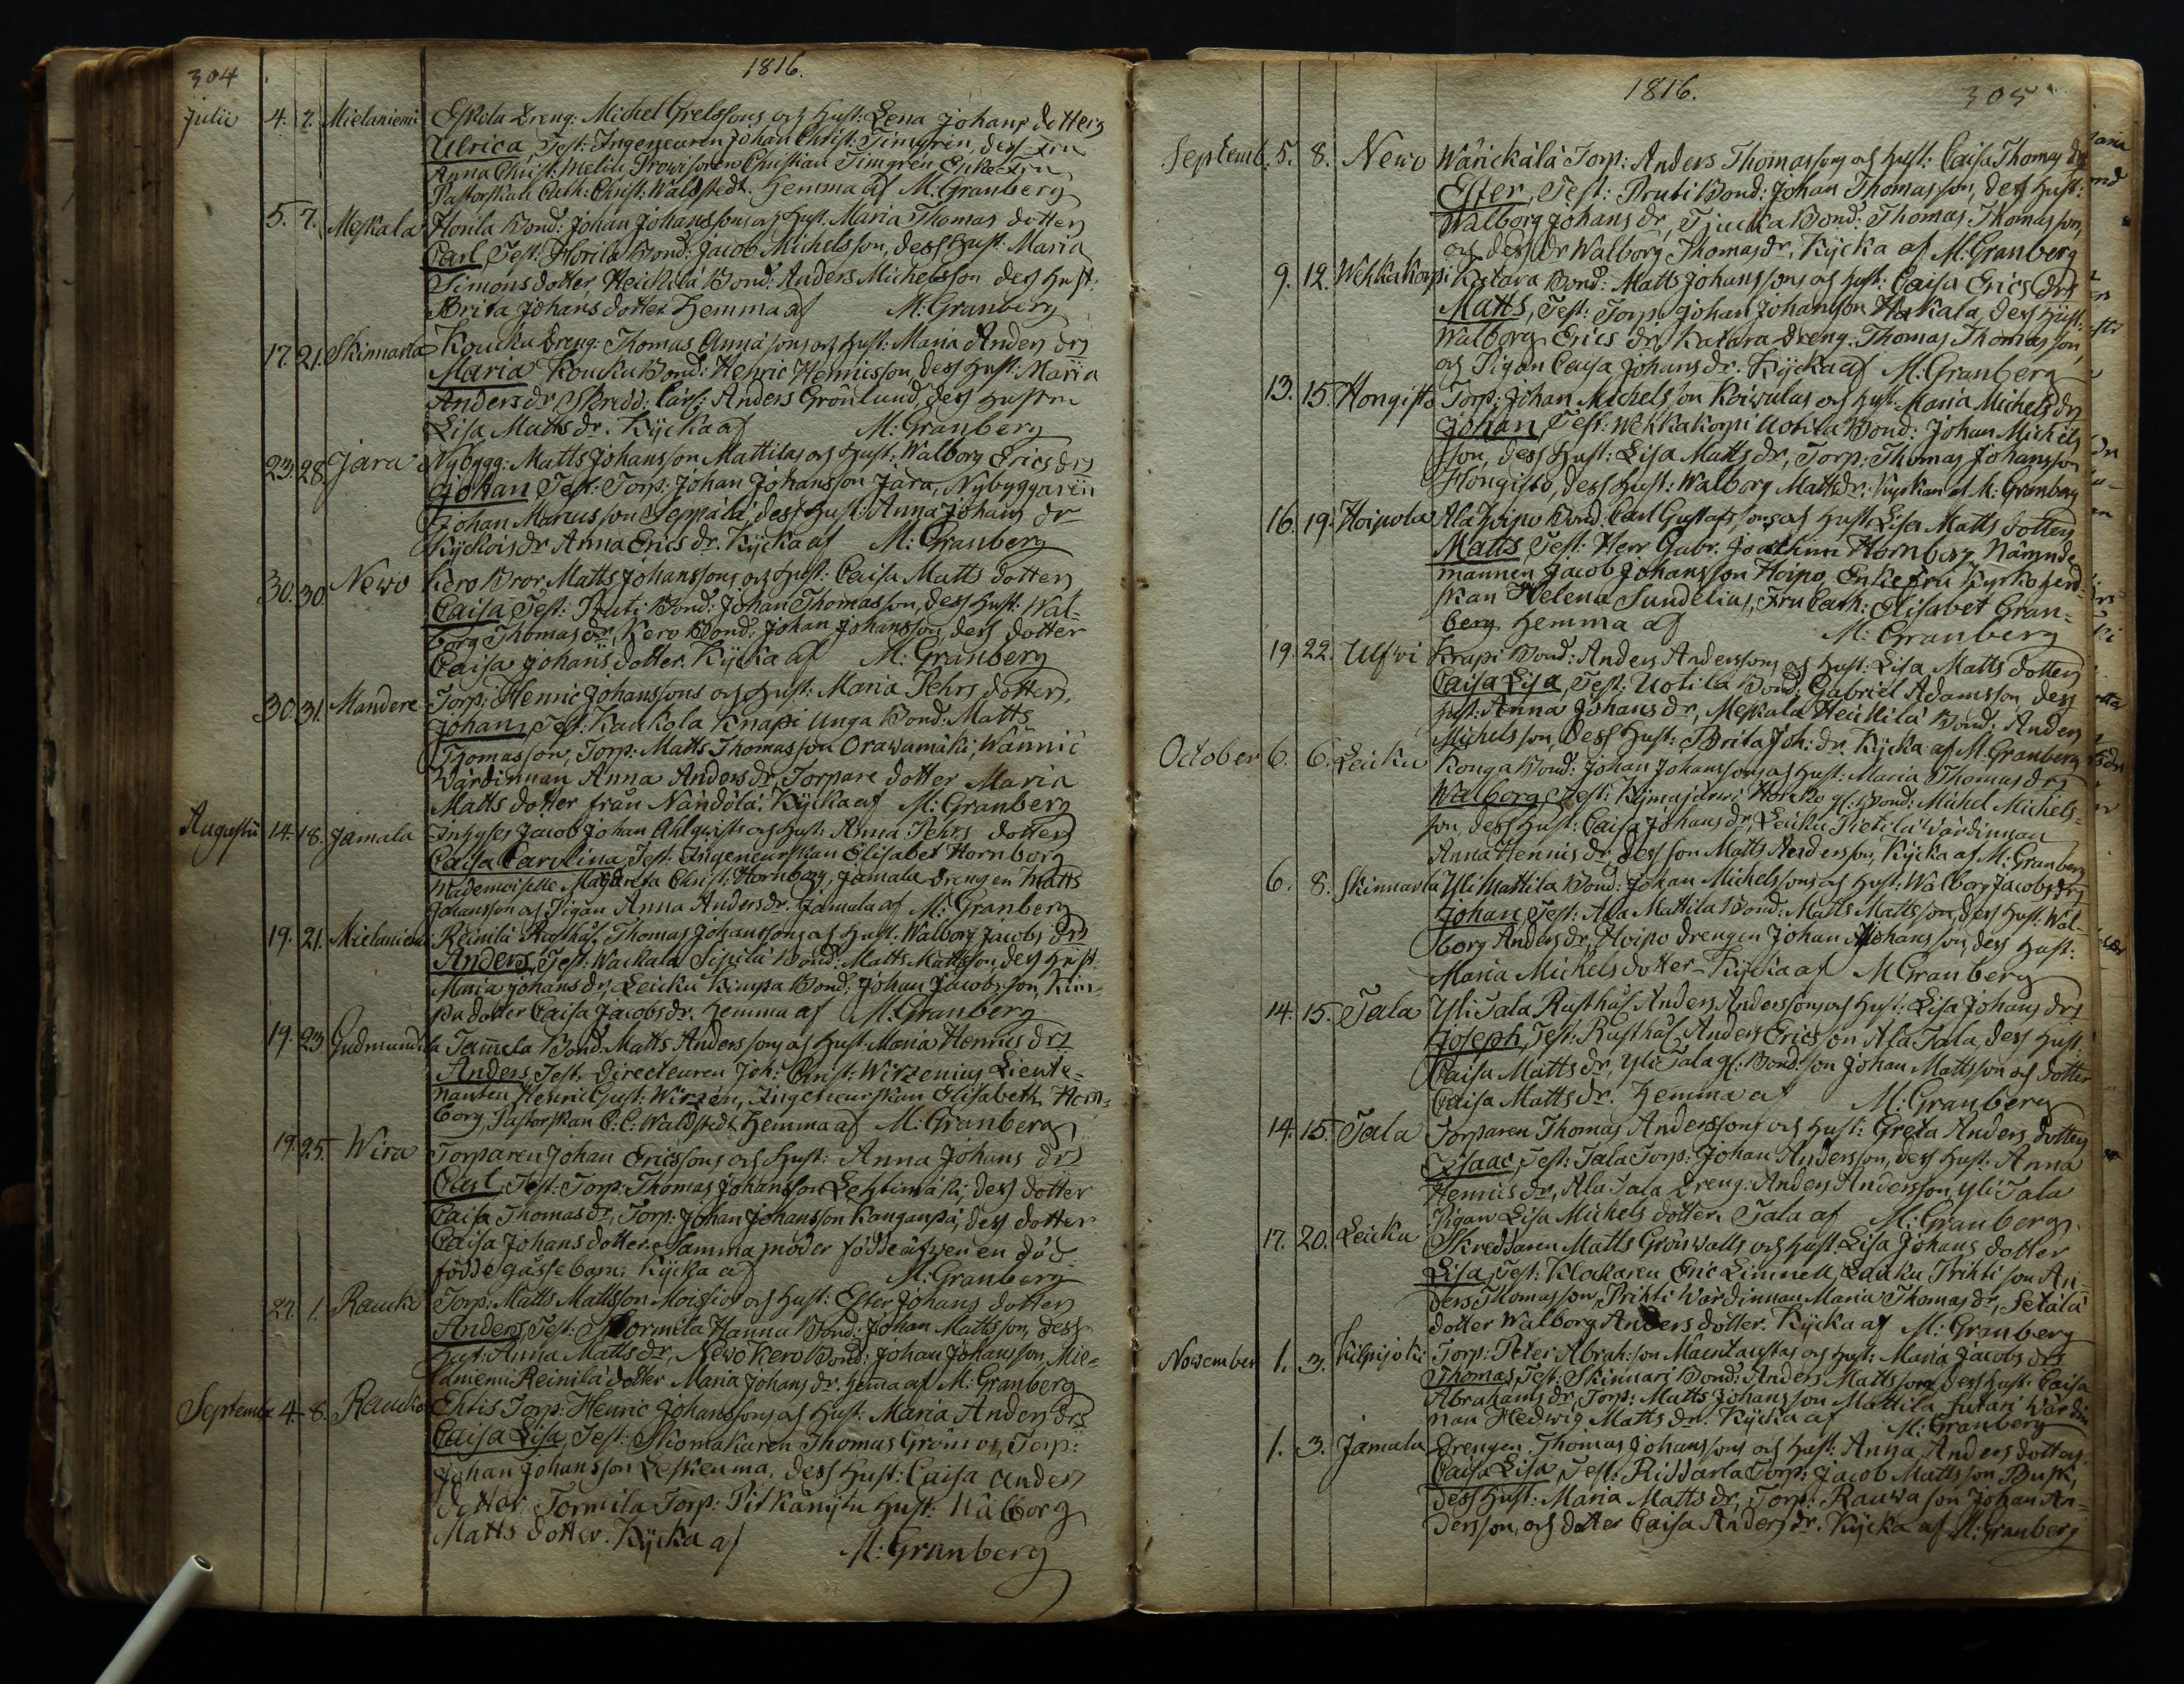 304
1816.
Julii 4. 7. Mielaniemi Eskola Dreng: Michel Grelssons och Hust: Lena Johans dotters
Ulrica Test: Ingenieuren Johan Christ: Timgrén, dess Fru
Anna Christ: Melin Provisoren Christian Timgren Enke Fru
Pastorskan Cath: Christ: Waldstedt. Hemma af M: Granberg
5. 7. Meskala Horila Bond: Johan Johanssons och Hust: Maria Thomas dotters
Carl, Test: Horila Bond: Jacob Michelsson, dess Hust: Maria
Simonsdotter, Heickilä Bond: Anders Michelsson dess Hust:
Brita Johans dotter Hemma af M: Granberg
17. 21. Skinnarla Koucku Dreng: Thomas Anna sons och Hust: Maria Anders drs
Maria Koucku Bond: Henric Hennisson, dess Hust: Maria
Anders dr Skredd: Carl: Anders Grönlund, dess Hustru
Lisa Matts dr. Kÿcka af M: Granberg
23. 28. Jära Nybygg: Matts Johansson Mattilas och Hust: Walborg Erics drs
Johan Test: Torp: Johan Johansson Jära, Nybyggaren
Johan Marcusson Seppälä, dess Hust: Anna Johans dr
Anna Erics dr. Kÿcka af M: Granberg
30. 30. Newo Kero Bror Matts Johanssons och Hust: Caisa Matts dotters
Caisa Test: Pruti Bond: Johan Thomasson, dess Hust: Wal-
borg Thomas dr, Kero Bond: Johan Johansson, dess dotter
Caisa Johans dotter. Kÿcka af M: Granberg
30. 31. Mandere Torp: Henric Johanssons och Hust: Maria Pehrs dotters.
Johan, Test: Kaukola Knapi Unga Bond: Matts
Thomasson, Torp: Matts Thomasson Orawamäki, Wännic
Wärdinnan Anna Anders dr, Torpare dotter Maria
Matts dotter från Nändölä. Kÿcka af M: Granberg
Augusti 14. 18. Jamala Inhyses Jacob Johan Ahlqwists och Hust: Anna Pehrs dotters
Caisa Carolina, Test: Ingenieurskan Elisabet Hornborg
Mademoiselle Margreta Christ: Hornborg, Jamala drengen Matts
Johansson och Pigan Anna Anders dr. Jamala af M: Granberg
19. 21. Mielaniemi Reinilä Rusthål: Thomas Johanssons och Hust: Walborg Jacobs drs
Anders, Test: Wackala Sipilä Bond: Matts Mattsson, dess Hust:
Maria Johans dr, Leicku Kimpa Bond: Johan Jacobsson, Kim-
pa dotter Caisa Jacobs dr. Hemma af M: Granberg
19. 23. Gudmundila Tam̃ela Bond: Matts Anderssons och Hust: Maria Hennis drs
Anders, Test: Directeuren Joh: Christ: Wirzenius Lieute-
nanten Henric Gust: Wirzén, Ingenieurskan Elisabeth Horn-
borg, Pastorskan C: C: Waldstedt, Hemma af M: Granberg
19. 25. Wira Torparen Johan Ericssons och Hust: Anna Johans drs
Carl, Test: Torp: Thomas Johansson Lehtimäki, dess dotter
Caisa Thomas dr, Torp: Johan Johansson Kanganpä, dess dotter
Caisa Johans dotter. Samma moder födde äfwen en död-
födde gåssebarn. Kÿcka af M: Granberg
27. 1. Rauck Torp: Matts Mattsson Moisios och Hust: Ester Johans dotters
Anders, Test: Tormila Hannu Bond: Johan Mattsson, dess
Hust: Anna Matts dr, Newo Kero Bond: Johan Johansson, Mie-
laniemi Reinilä dotter Maria Johans dr. Hem̃a af M: Granberg
September 4. 8. Rauck Ehtis Torp: Henric Johanssons och Hust: Maria Anders drs
Caisa Lisa, Test: Skomakaren Thomas Grönros, Torp:
Johan Johansson Leskenma, dess Hust: Caisa Anders
dotter Tormila Torp: Pitkänytu Hust: Walborg
Matts dotter. Kÿcka af M: Granberg
1816.
305
Septemb. 5. 8. Newo Wärickälä Torp: Anders Thomassons och Hust: Caisa Thomas drs
Ester, Test: Pruti Bond: Johan Thomasson, dess Hust:
Walborg Johans dr, Tjucka Bond: Thomas Thomasson,
och dess dr Walborg Thomas dr. Kÿcka af M: Granberg
9. 12. Wehkakorpi Katara Bond: Matts Johanssons och Hust: Caisa Erics drs
Matts, Test: Torp: Johan Johansson Hakala, dess Hust:
Walborg Erics dr, Katara Dreng: Thomas Thomasson,
och Pigan Caisa Johans dr. Kÿcka af M: Granberg
13. 15. Hongisto Torp: Johan Michelsson Koiwulas och Hust: Maria Michels drs
Johan, Test: Wehkakorpi Uotila Bond: Johan Michels
son, dess Hust: Lisa Matts dr, Torp: Thomas Johansson
Hongisto, dess Hust: Walborg Matts dr. Kyrkan af M: Granberg
16. 19. Hoipola Ala Hoipo Bond: Carl Gustafssons och Hust: Lisa Matts dotters
Matts, Test: Herr Gabr: Joachim Hornborg Nämnde
mannen Jacob Johansson Hoipo, Enke fru Kyrkoherd-
skan Helena Sundelia, Fru Cath: Elisabet Gran-
berg. Hemma af M: Granberg
19. 22. Ulfwi Krapi Bond: Anders Anderssons och Hust: Lisa Matts dotters
Caisa Lisa, Test: Uotila Bond: Gabriel Adamsson, dess
Hust: Anna Johans dr, Meskala Heickilä Bond: Anders
Michelsson, dess Hust: Brita Joh: dr. Kÿcka af M: Granberg
October 6. 6. Leicku Konga Bond: Johan Johanssons och Hust: Maria Thomas drs
Walborg, Test: Kymäjärwi Horcko gl: Bond: Michel Michels-
son, dess Hust: Caisa Johans dr, Leicku Pietilä Wärdinnan
Anna Hennis dr, dess son Matts Andersson, Kÿcka af M: Granberg
6. 8. Skinnarla Yli Mattila Bond: Johan Michelssons och Hust: Walborg Jacobs drs
Johan, Test: Ala Mattila Bond: Matts Mattsson, dess Hust: Wal-
borg Anders dr, Hoipo drengen Johan Johansson, dess Hust:
Maria Michels dotter – Kÿcka af M Granberg
14. 15. Tala Yli Tala Rusthål: Anders Anderssons och Hust: Lisa Johans drs
Joseph, Test: Rusthål: Anders Ericsson Ala Tala, dess Hust:
Caisa Matts dr, Yli Tala gl: Bond: son Johan Mattsson och dotter
Caisa Matts dr. Hemma af M: Granberg
14. 15. Tala Torparen Thomas Anderssons och Hust: Greta Anders dotters
Isaac, Test: Tala Torp: Johan Andersson, dess Hust: Anna
Hennis dr, Ala Tala Dreng: Anders Andersson, Yli Tala
Pigan Lisa Michels dotter. Tala af M: Granberg.
17. 20. Leicku Skreddaren Matts Grönwalls och Hust: Lisa Johans dotter
Lisa, Test: Klockaren Eric Limnell, Laicku Prihti son An-
ders Thomasson, Prihti Wärdinnan Maria Thomas dr, Setälä
dotter Walborg Anders dotter. Kÿcka af M: Granberg
November 1. 3. Kilpijoki Torp: Peter Abrah:son Mäentaustas och Hust: Maria Jacobs drs
Thomas, Test: Skinnari Bond: Anders Mattsson, dess Hust: Caisa
Abrahams dr, Torp: Matts Johansson Mattila, Wärdin
nan Hedwig Matts dr. Kÿcka af M: Granberg
1. 3. Jamala Drengen Thomas Johanssons och Hust: Anna Anders dotters
Caisa Lisa, Test: Riddarla Torp: Jacob Mattsson Buski,
dess Hust: Maria Matts dr, Torp: Rauwa son Johan An-
dersson, och dotter Caisa Anders dr. Kÿcka af M: Granberg